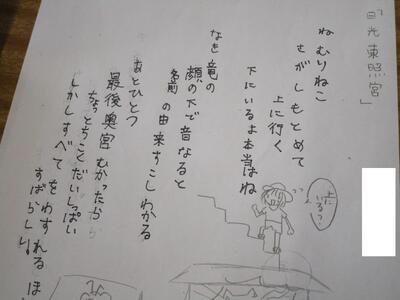 「日光東照宮」
ねむりねこ
さがしもとめて
上に行く
下にいるよ本当はね
なき竜の
顔の下で音なると
名前の由来すこしわかる
あとひとつ
最後奥宮むかったから
ちょっとちこくだいしっぱい
しかしすべてをわすれるほ
すばらしい
上に
いる?